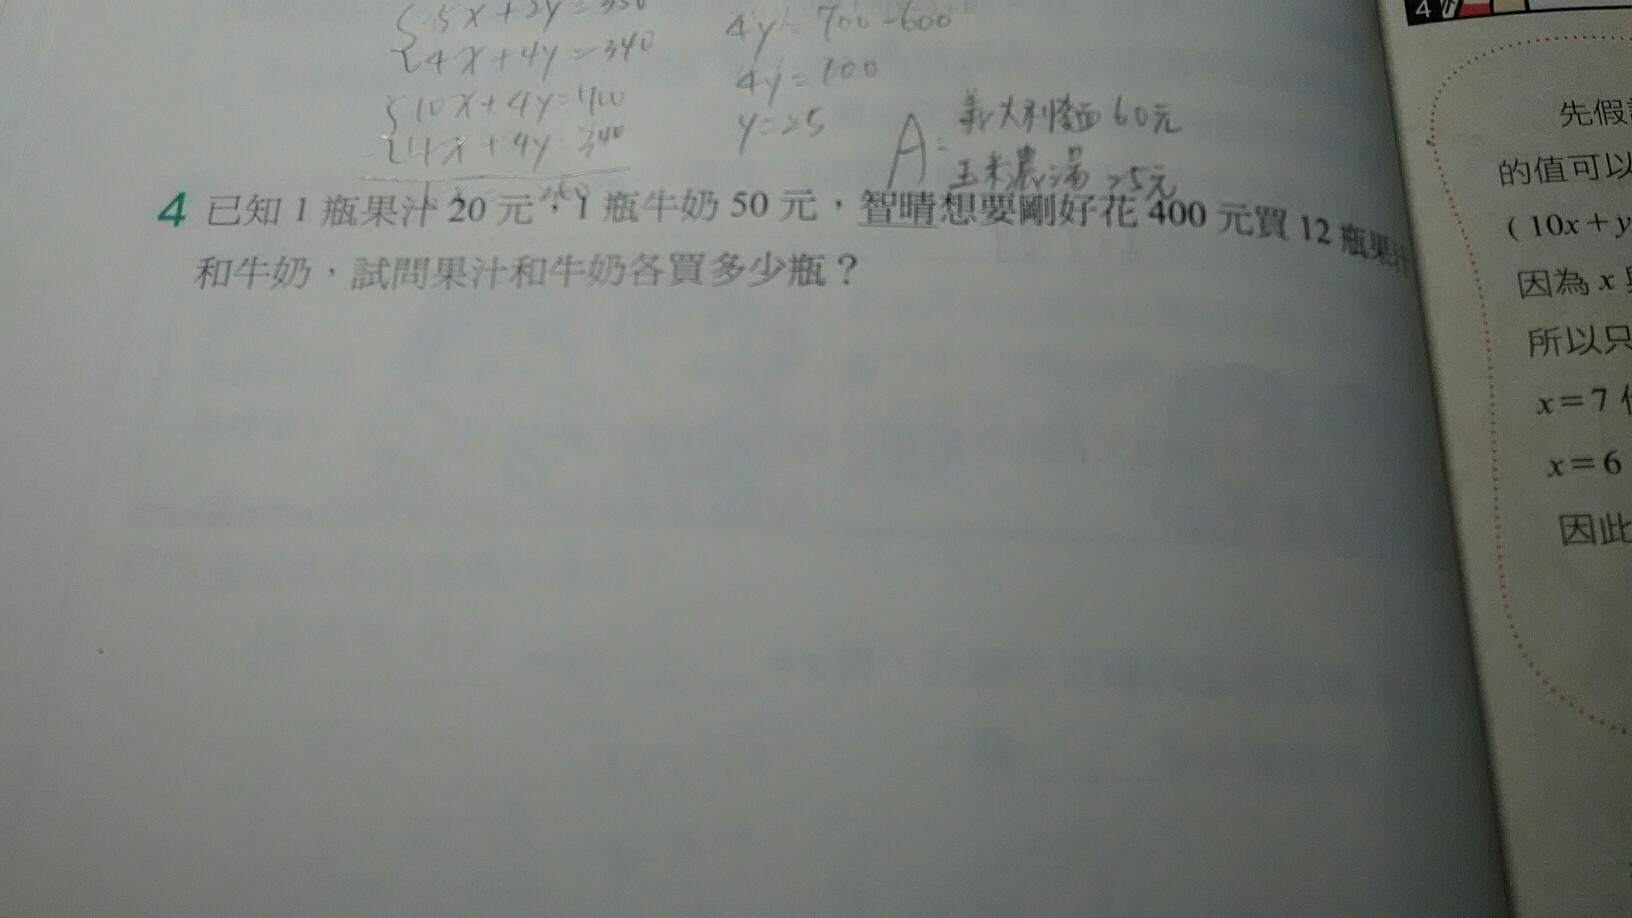 5x+2y=350
4x+4y=340
10x+4y=700
-4x+4y=340
4y=700-600
4y=100
y=25
A: 義大利麵60元
玉米濃湯25元
4 已知 1 瓶果汁 20 元，1 瓶牛奶 50 元，智晴想要剛好花 400 元買 12 瓶果汁
和牛奶，試問果汁和牛奶各買多少瓶？
4
先假
的值可以
(10x+y
因為 x
所以只
x=7
x=6
因此